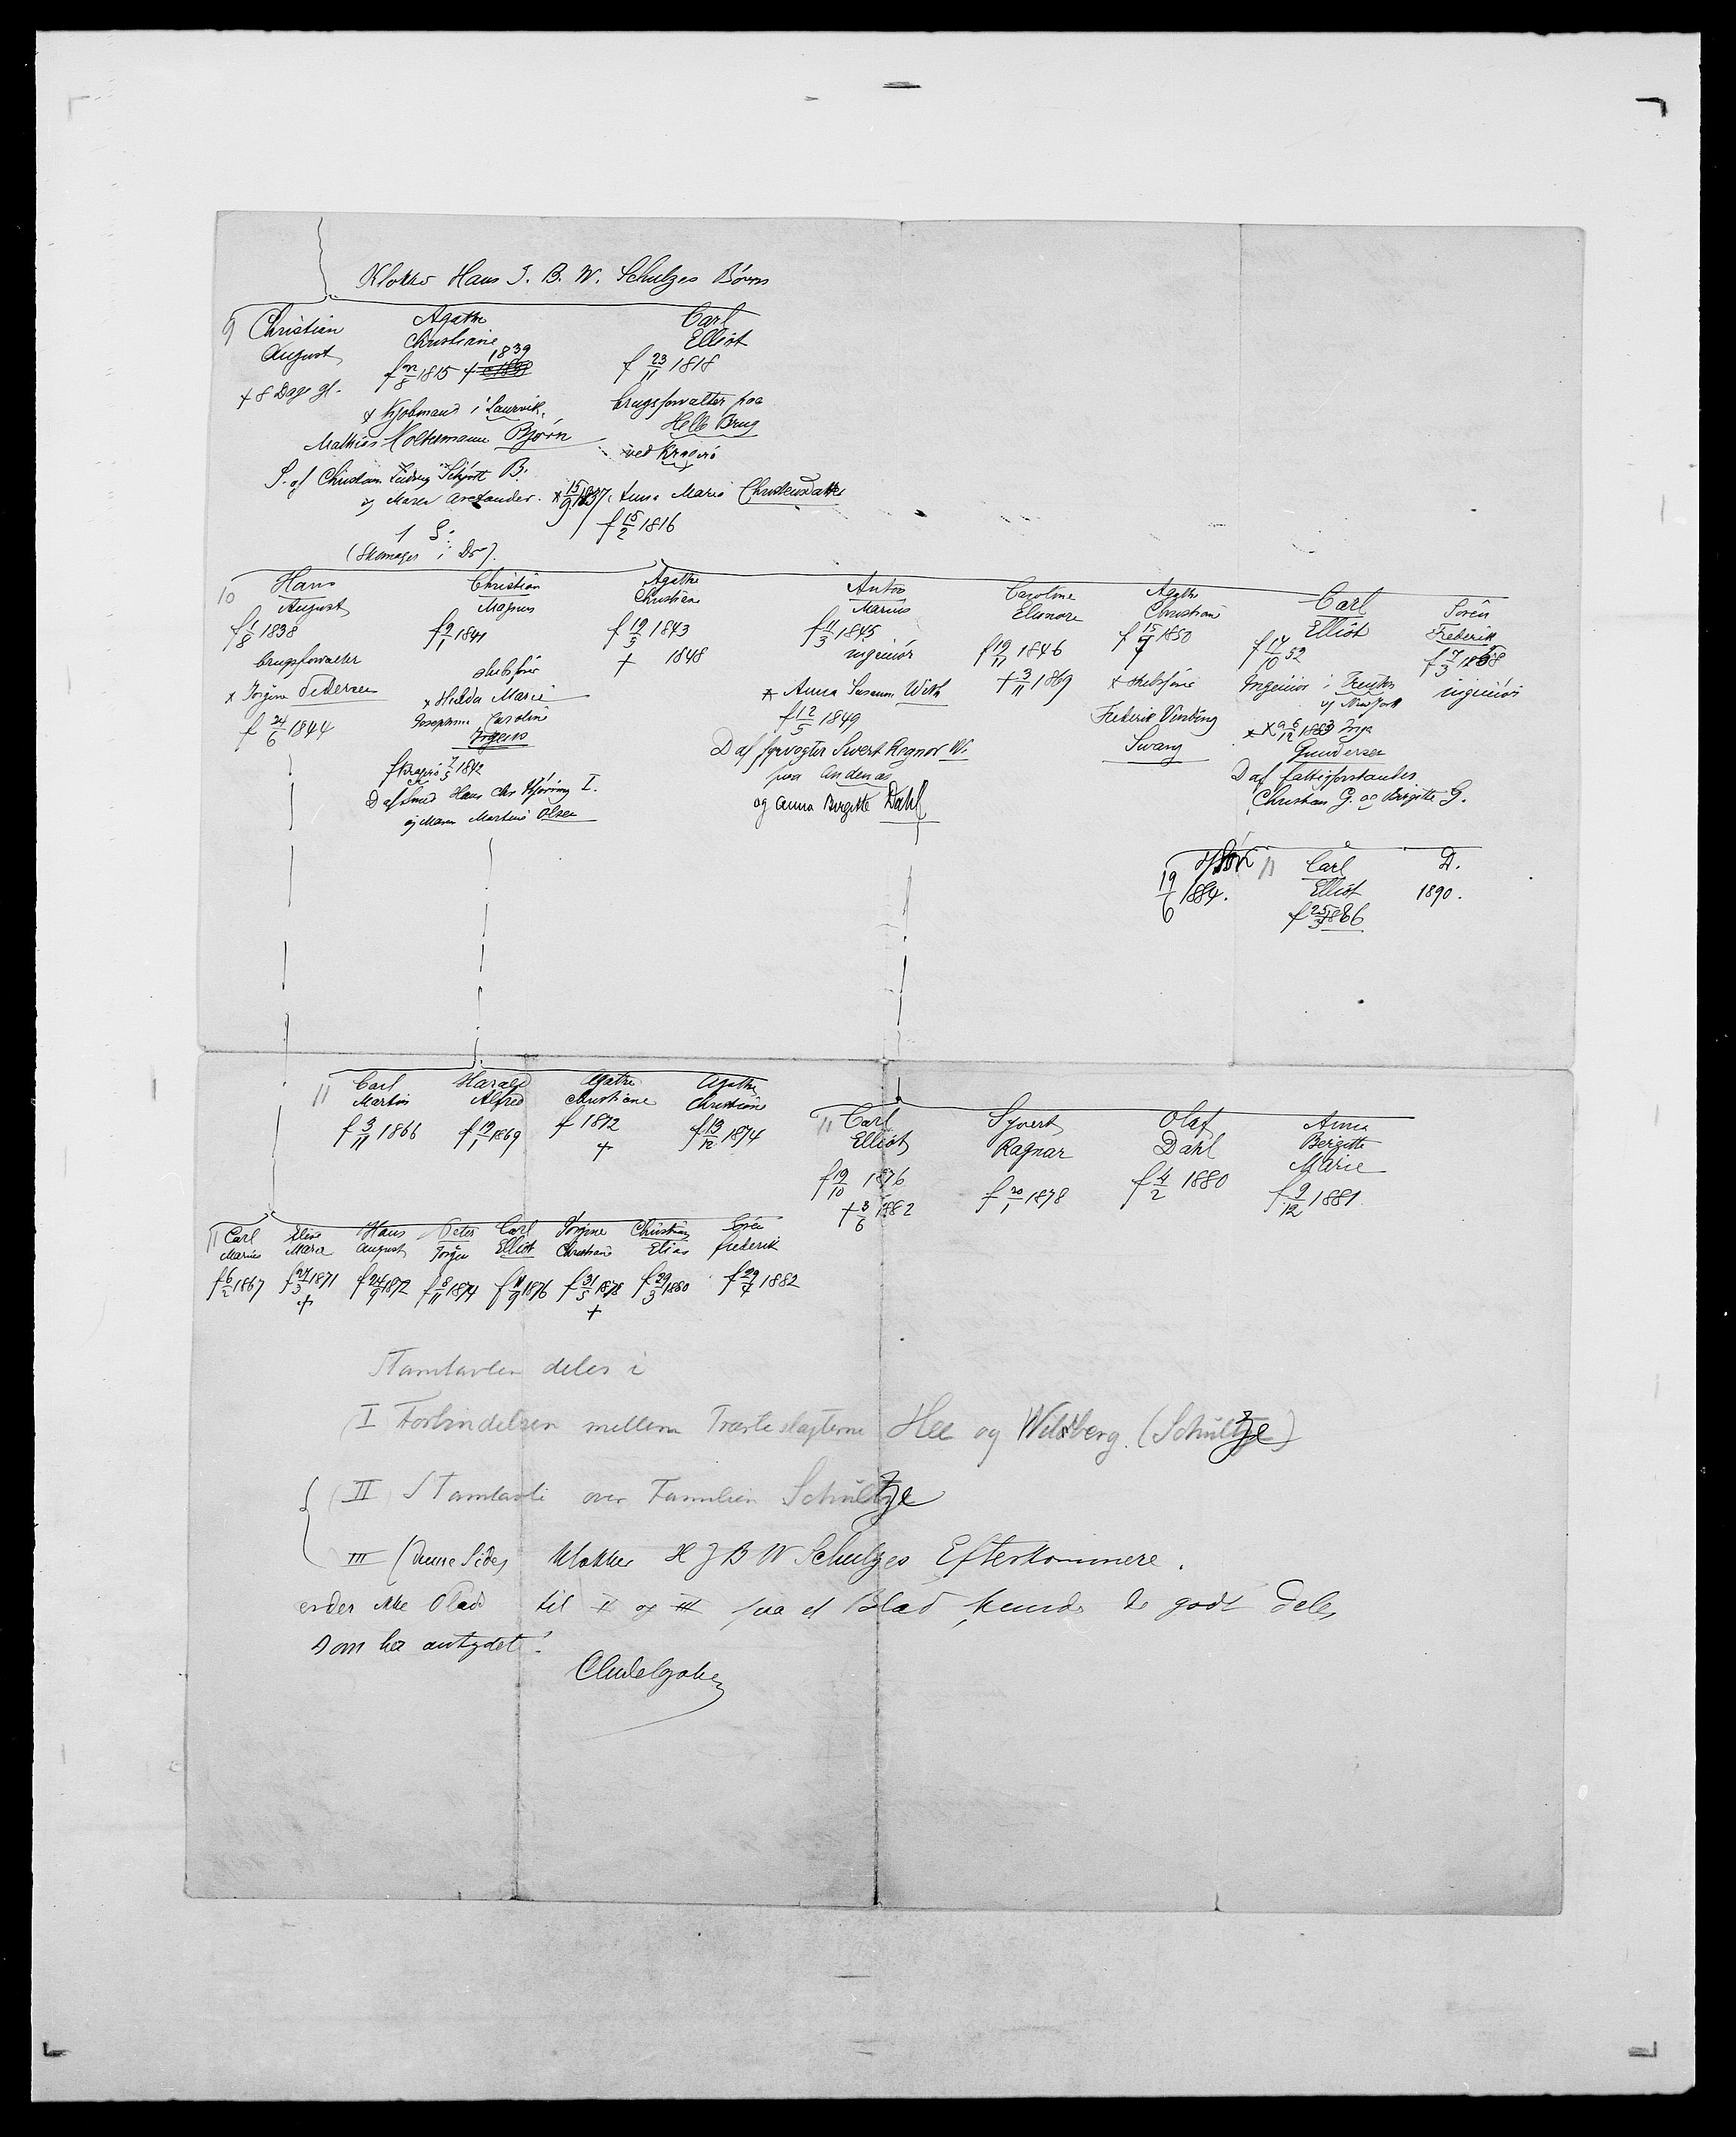 Klokker Hans J. B. W. Schulzes Børn
9 Christian August
+ 8 Dage gl.
Agathe Christiane
f 22/8 1815 + 1839
x Kjøbmand i Laurvik,
Mathias Holtermann Bjørn
S. af Christian Ludvig Schjøtt B.
og Maren Arctander.
1 S.
(Skomager i Dr.)
Carl Elliot
f 23/11 1818
brugsforvalter paa
Helle Brug
ved Kragerø
x 15/9 1837, Anna Marie Christensdatter
f 15/2 1816
10 Hans August
f 1/8 1838
brugsforvalter
x Jørgine Pedersen
f 24/6 1844
Christian Magnus
f 9/1 1841
skibsfører
x Hilda Marie
Josephine Caroline
f Kragerø 7/5 1842
D af Smed Hans Chr Hjørring I.
og Maren Martine Olsen
Agathe Christiane
f 19/3 1843
+ 1848
Anton Marius
f 11/3 1845
ingeniør
x Anna Susanna With
f 12/5 1849
D af fyrvogter Sivert Regnor W.
paa Andenæs
og Anna Birgitte Dahl
Caroline Elonore
f 19/11 1846
+ 3/11 1869
Agathe Christiane
f 15/7 1850
x skibsfører
Frederik Vinding
Svang
Carl Elliot
f 17/10 52
Ingeniør i Trenton
v/ New York
x 26/12 1883 Inga
Gundersen
D af fattigforstander
Christian G. og Birgitte G.
Sören Frederik
f 7/3 1858
ingeniør
19/6 1884.
11 Carl Elliot
f 25/3 1886
D.
1890.
11 Carl Martin
f 3/11 1866
Harald Alfred
f 19/1 1869
Agathe Christiane
f 1872
+
Agathe Christiane
f 13/12 1874
11 Carl Elliot
f 19/10 1876
+ 3/6 1882
Syvert Ragnar
f 20/1 1878
Olaf Dahl
f 4/2 1880
Anna Bergitte Marie
f 9/12 1881.
11 Carl Marius
f 6/2 1867
Eline Maria
f 27/3 1871
+
Hans August
f 24/9 1872
Peter Jørgen
f 8/11 1874
Carl Elliot
f 11/9 1876
Jörgine Christiane
f 31/5 1878
+
Christian Elias
f 29/3 1880
Sören Frederik
f 29/4 1882
Stamtavlen deles i
I Forbindelsen mellem Præsteslægterne Hee og Wildberg. (Schultze)
II Stamtavle over Familien Schultze
III (denne Side) Klokker H J B W Schulzes Efterkommere.
er der ikke Plads til II og III paa et Blad kunde de godt deles
som her antydet!